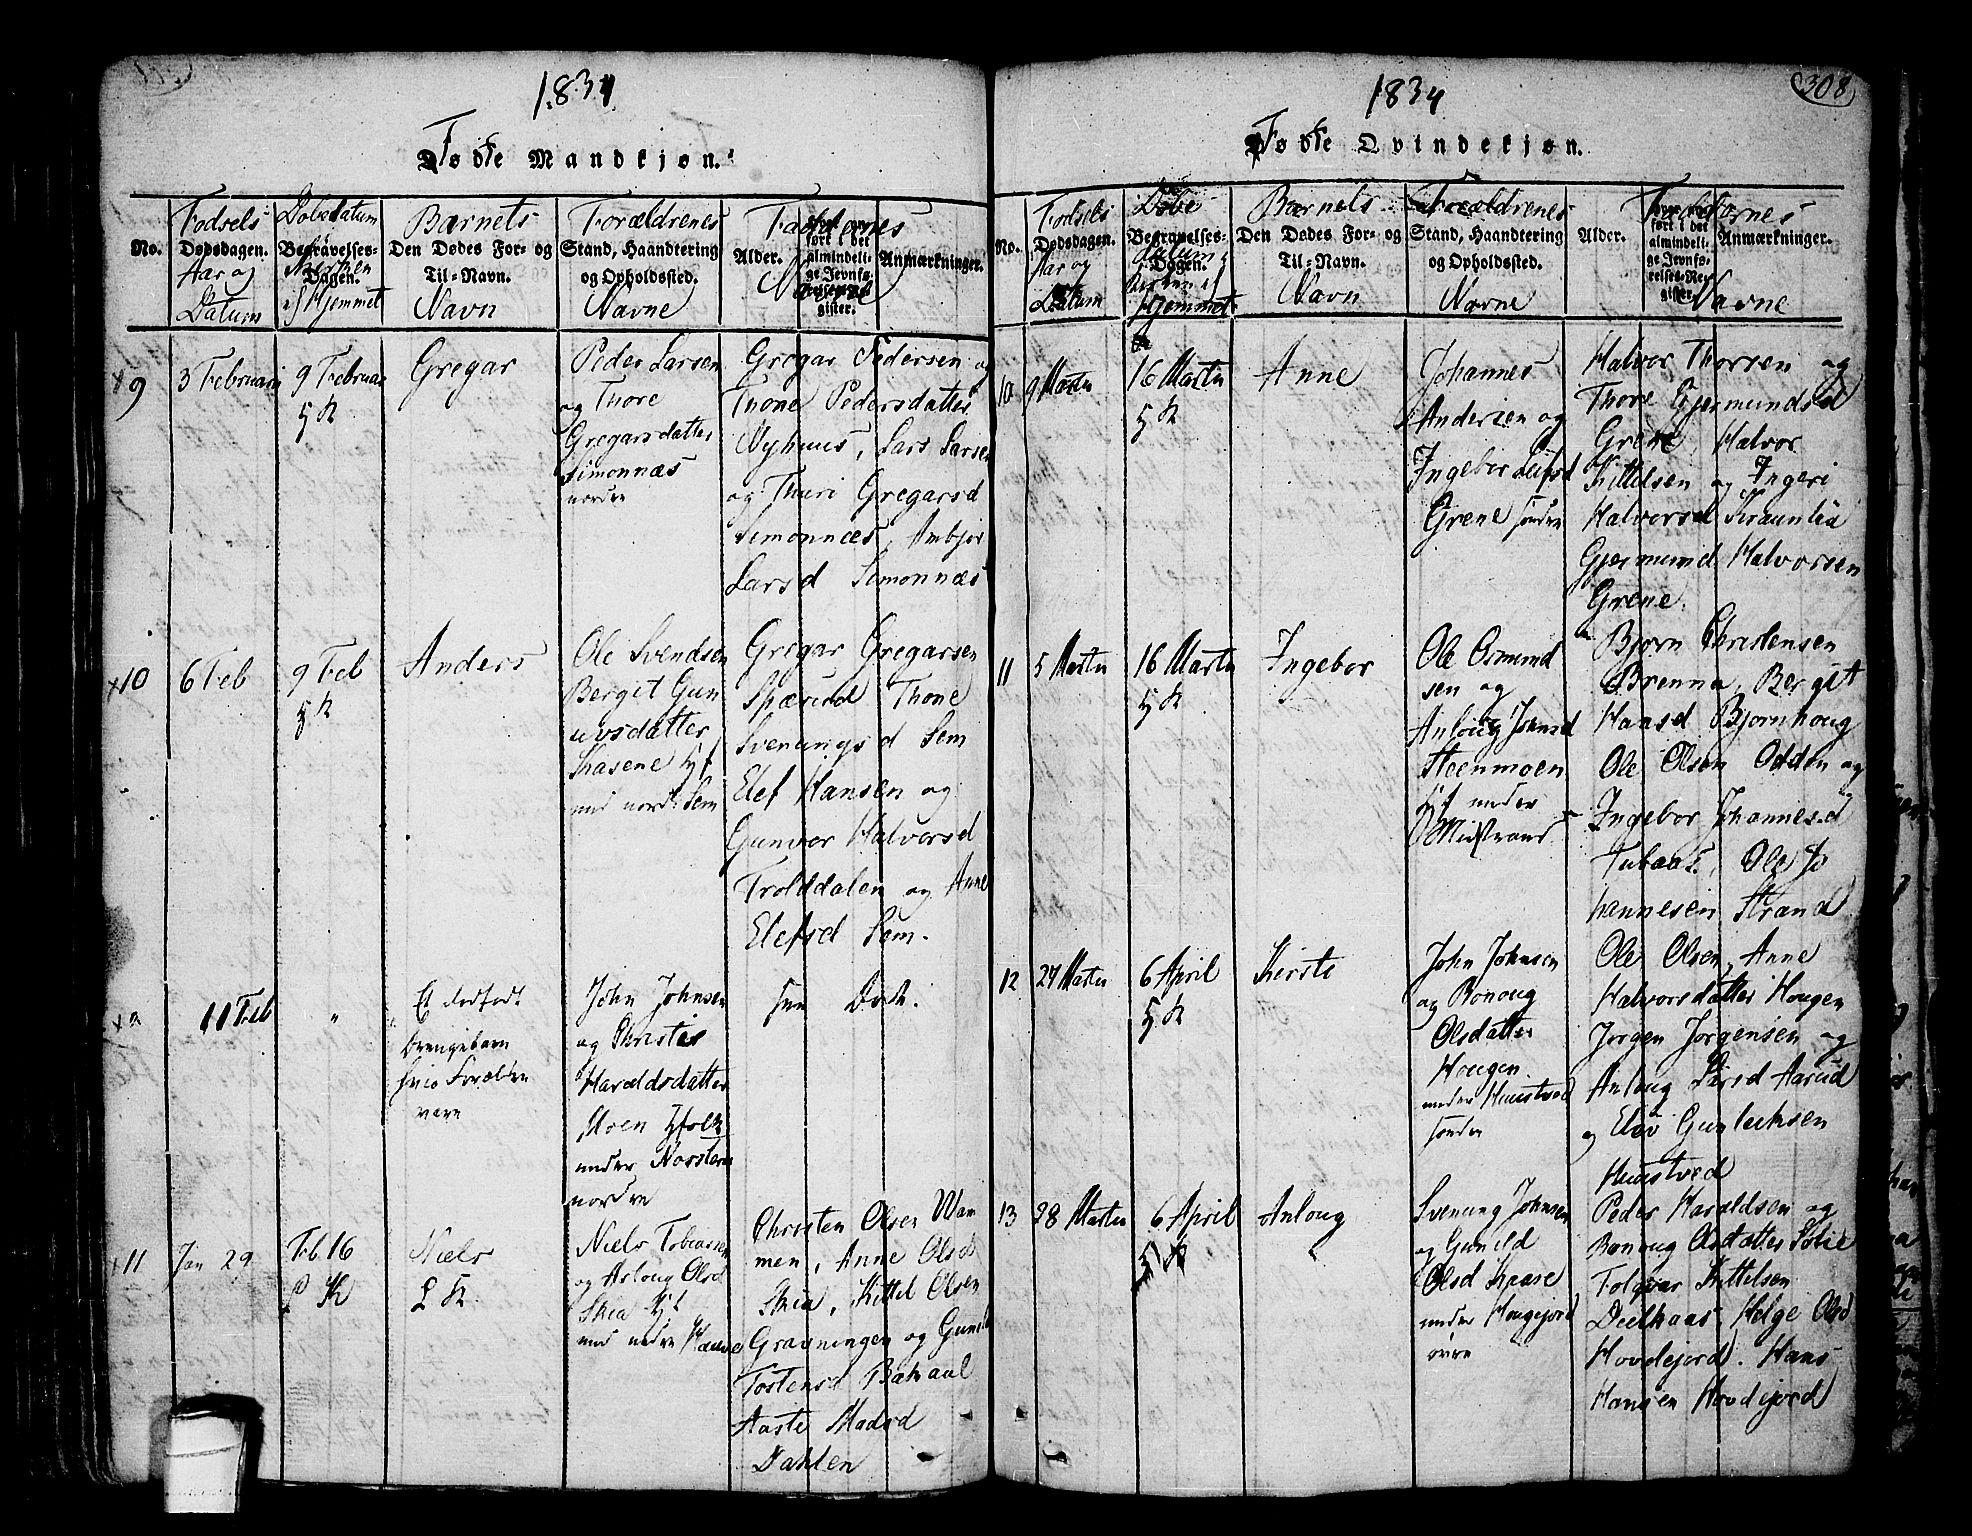 1834
Fødte Mandkjøn.
No.
Fødsels
Dødsdagen.
Aar og
Datum
Døbsdatum
Begravelses-
Dagen.
i Kirken
i Hjemmet
Barnets
Den Dødes For- og
Til-Navn.
Navn
Forældrenes
Stand, Haandtering
og Opholdssted.
Navne
Faddernes
Alder.
ført i det
almindeli-
ge Jevnfø-
relses-Re-
gister.
Anmærkninger.
Navne
9
3 Februar
9 Februar
5 K
Gregar
Peder Larsen
og Thore
Gregarsdatter
Simonnæs
nordre
Gregar Pedersen og
Thone Pedersdatter
Nyhuus, Lars Larsen
og Thuri Gregarsd
Simonnæs, Ambjør
Larsd Simonnæs
10
6 Feb
9 Feb
5 K
Anders
Ole Svendsen
Bergit Gun
uvsdatter
Kasene Hf
und nordr Sem
Gregar Gregarsen
Spærud Thone
Svenungsd Sem
Elef Hansen og
Gunvor Halvorsd
Trolddalen og Anne
Elefsd Sem.
11 Feb
"
Et dødfødt
Drengebarn
hvis Forældre
vare
John Johnsen
og Christie
Haraldsdatter
Moen Hfolk
under Norsterud
nordre
11
Jan 29
Feb. 16
L K
Niels
L K.
Niels Tobiasen
og Asloug Olsd
Skia Hf
und nedre Hænve
Christen Olsen Wam
men, Anne Olsd
Skia, Kittel Olsen
Gravningen og Gunild
Tostensd Bakaal
Aaste Madsd
Dahlen
308
1834
Fødte Qvindekjøn.
No.
Fødsels
Dødsdagen.
Aar og
Datum
Døbe
Begravelses-
datum
Dagen.
Kirken i
Hjemmet
Barnets
Den Dødes For- og
Til-Navn.
Navn
Forældrenes
Stand, Haandtering
og Opholdssted.
Navne
Faddernes
Alder.
ført i det
almindeli-
ge Jevnfø-
relses-Re-
gister.
Anmærkninger.
Navne
10
9 Marts
16 Marts
5 K
Anne
Johannes
Andersen og
Ingebor Leifsd
Grene søndre
Halvor Thorsen og
Thore Gjermundsd
Grene, Halvor
Kittelsen og Ingeri
Halvorsd Skraunlid
Gjermund Halvorsen
Grene.
11
5 Marts
16 Marts
5 K
Ingebor
Ole Osmund
sen og
Anloug Johnsd
Steenmoen
Hf under
Midstrand
Bjørn Christensen
Brenna, Bergit
Hansd Bjornhoug
Ole Olsen Odden og
Ingebor Johannesd
Tubaas, Ole Jo
hannesen Strand
12
27 Marts
6 April
5 K
Kirste
John Johnsen
og Bonoug
Olsdatter
Hougen
under Huustved
søndre
Ole Olsen, Anne
Halvorsdatter Hougen
Jorgen Jorgensen og
Anloug Larsd Aarud
og Elev Gunleiksen
Huustved
13
28 Marts
6 April
5 K
Anloug
Svenung Johnsen
og Gunild
Olsd Kaase
under Hougejord
øvre
Peder Haraldsen og
Bonoug Olsdatter Solie
Folqvar Kittelsen
Deelkaas Helge Olsd
Hovdejord. Hans
Hansen Hovdejord